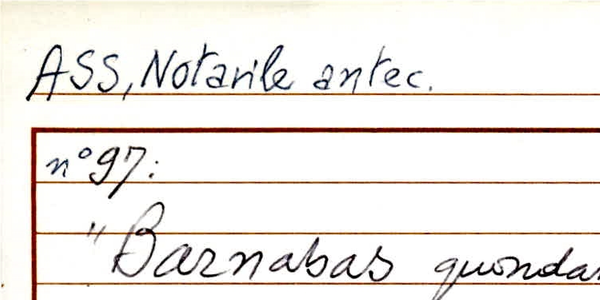 ASS, Notarile antec.
n° 97:
"Barnabas quondam